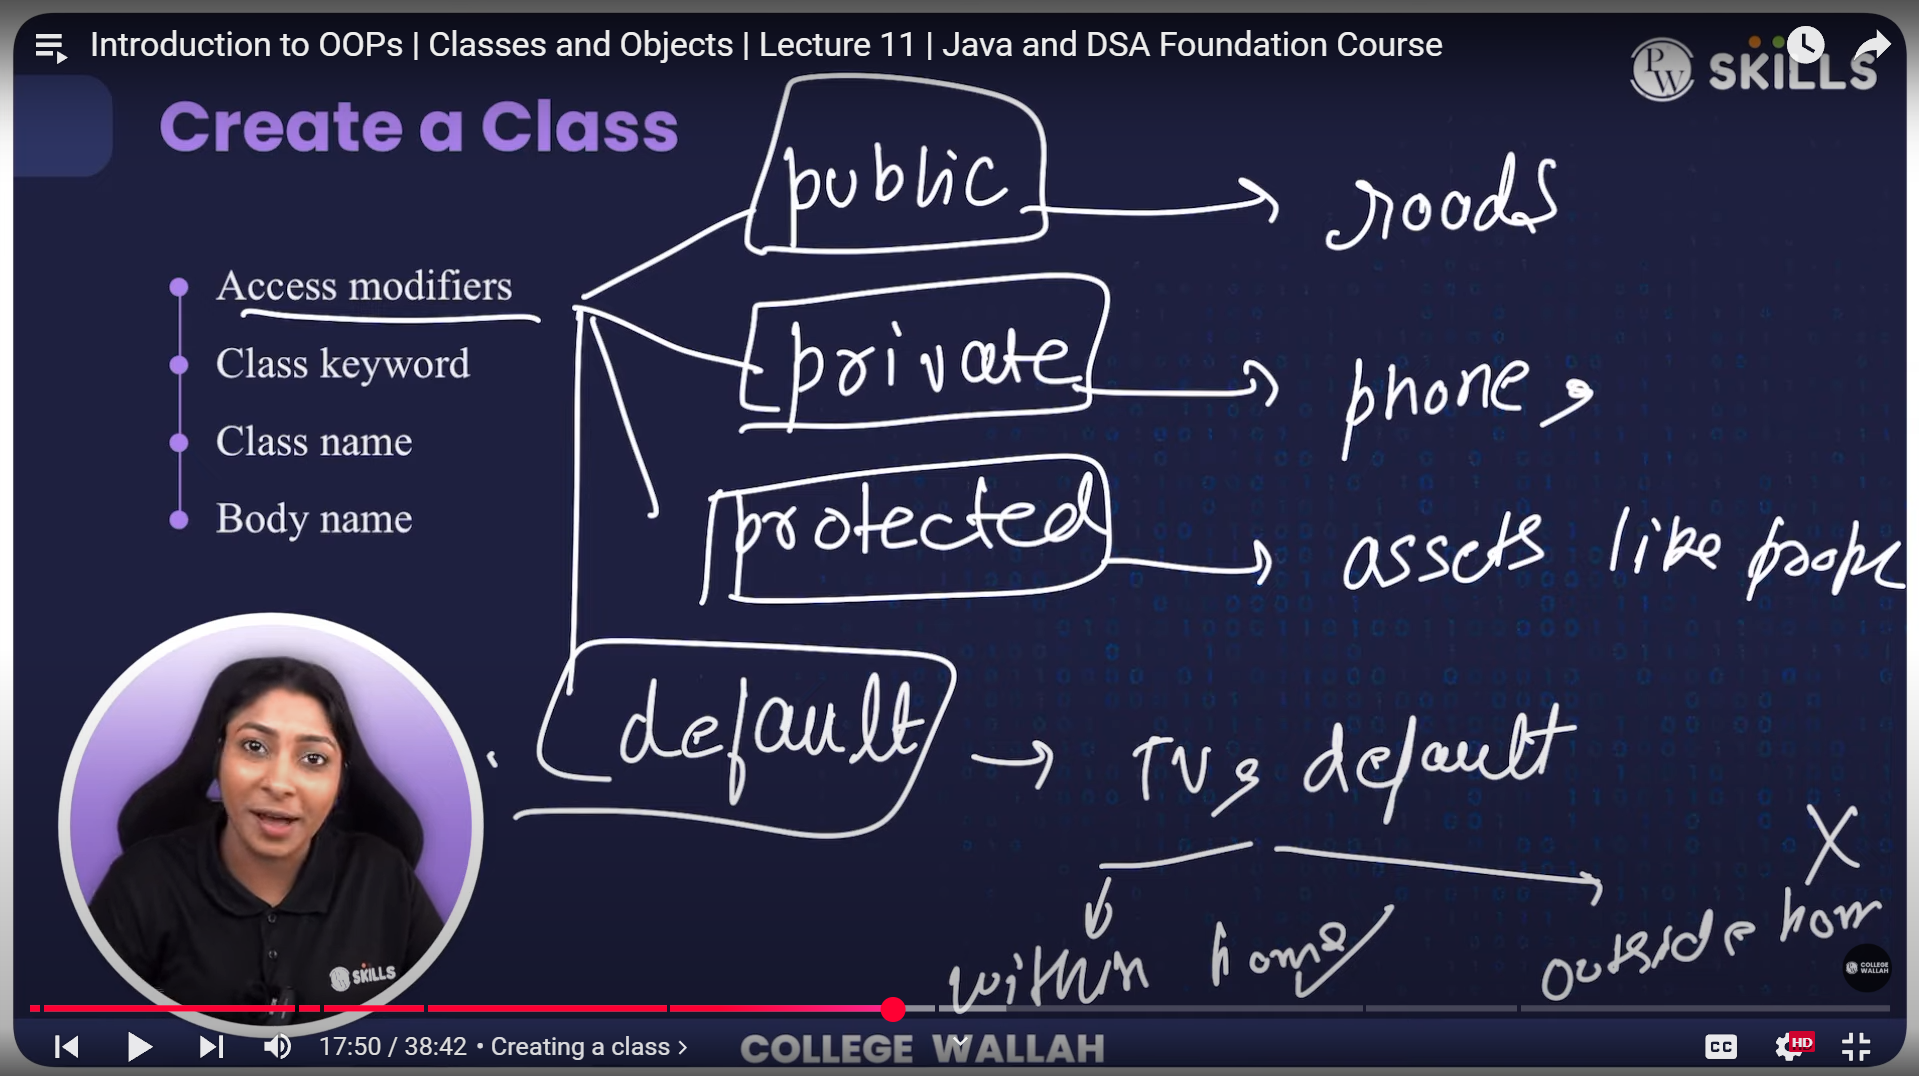 Introduction to OOPs | Classes and Objects | Lecture 11 | Java and DSA Foundation Course
PW SKILLS
Create a Class
public → roads
Access modifiers
Class keyword
Class name
Body name
private → phone,
protected → assets like
default → TV, default
X
within home
outside hom
SKILLS
COLLEGE WALLAH
17:50 / 38:42 • Creating a class >
COLLEGE WALLAH
CC
HD